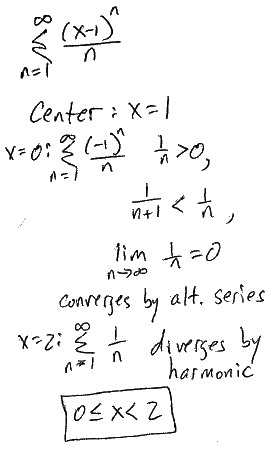 ∞
Σ (x-1)^n / n
n=1
Center: x=1
x=0: Σ_{n=1}^{∞} (-1)^n / n   1/n >0,
1/(n+1) < 1/n ,
lim_{n→∞} 1/n =0
converges by alt. series
x=2: Σ_{n=1}^{∞} 1/n diverges by
harmonic
0≤x<2